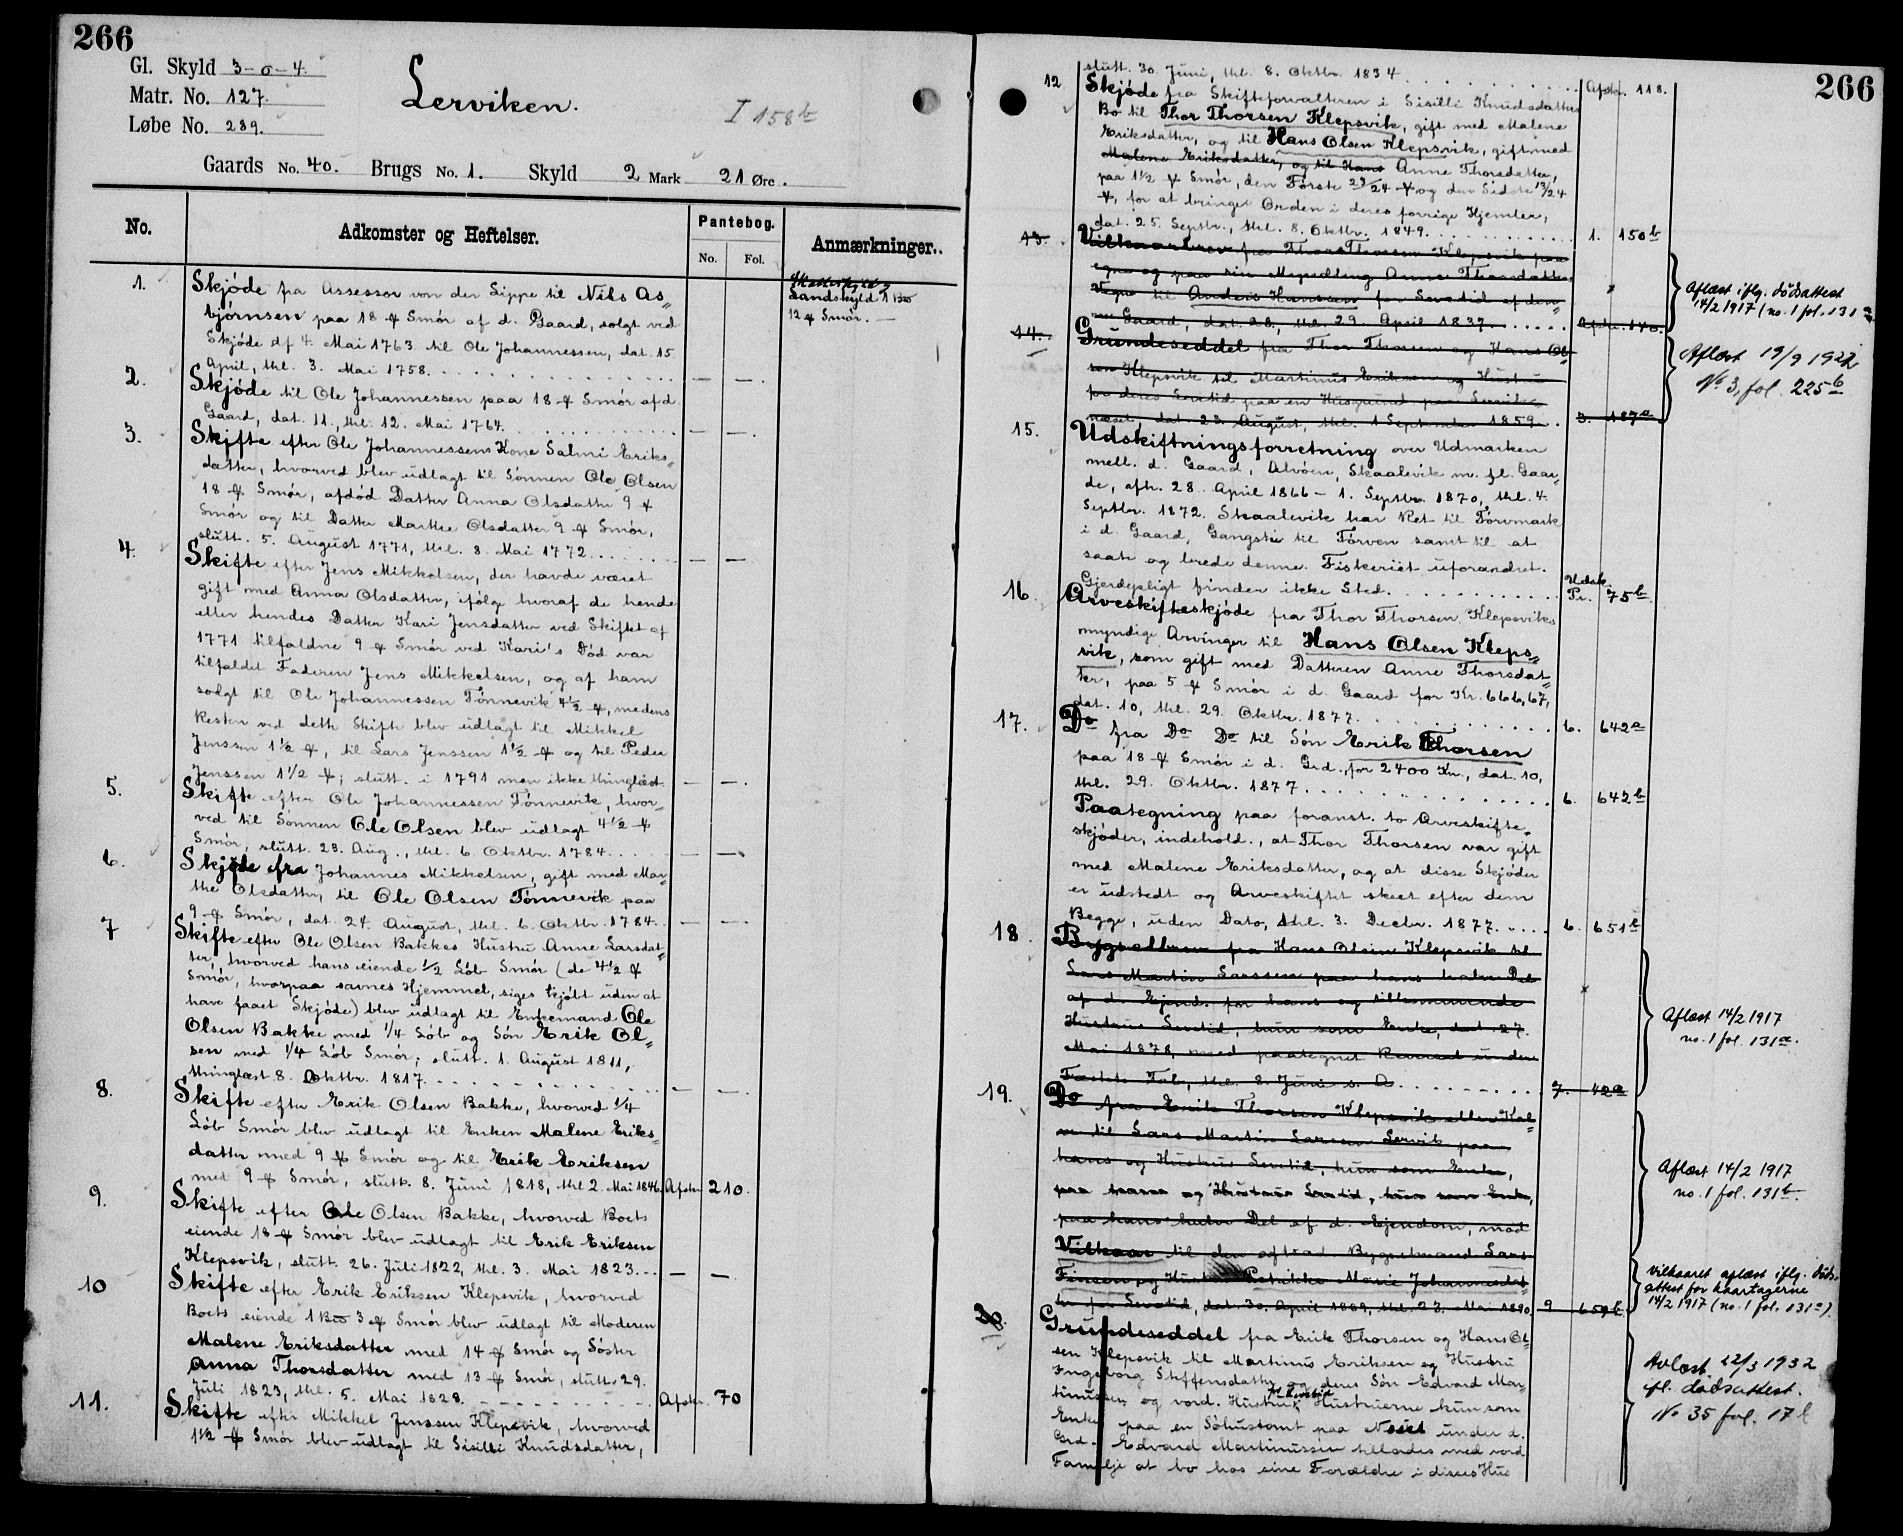 266
Gl. Skyld 3-0-4.
Matr. No. 127.
Løbe No. 239.
Lerviken.
I 158 b
Gaards No. 40. Brugs No. 1. Skyld 2 Mark 21 Øre.
No. Adkomster og Heftelser. Pantebog. Anmærkninger.
No. Fol.
Landskyld 1
12 ℔ Smør. —
1. Skjøde fra Assessor von der Lippe til Nils As„
bjørnsen paa 18 ℔ Smør af d. Gaard, solgt ved
Skjøde df 4. Mai 1763 til Ole Johannessen, dat. 15
April, thl. 3. Mai 1758. — —
2. Skjøde til Ole Johannessen paa 18 ℔ Smør af d.
Gaard, dat. 11., thl. 12. Mai 1764. — —
3. Skifte efter Ole Johannessens Kone Salmi Eriks„
datter, hvorved blev udlagt til Sønnen Ole Olsen
18 ℔ Smør, afdød Datter Anna Olsdatter 9 ℔
Smør og til Datter Marthe Olsdatter 9 ℔ Smør,
slutt. 5. August 1771, thl. 8. Mai 1772. — —
4. Skifte efter Jens Mikkelsen, der havde været
gift med Anna Olsdatter, ifølge hvoraf de hende
eller hendes Datter Kari Jensdatter ved Skiftet af
1771 tilfaldne 9 ℔ Smør ved Kari's Død var
tilfaldet Faderen Jens Mikkelsen, og af ham
solgt til Ole Johannessen Tønnevik 4½ ℔, medens
Resten ved dette Skifte blev udlagt til Mikkel
Jenssen 1½ ℔, til Lars Jenssen 1½ ℔ og til Peder
Jenssen 1½ ℔; slutt. i 1791 men ikke thinglæst. — —
5. Skifte efter Ole Johannessen Tønnevik, hvor„
ved til Sønnen Ole Olsen blev udlagt 4½ ℔
Smør, slutt. 23. Aug., thl. 6. Oktbr. 1784. — —
6. Skjøde fra Johannes Mikkelsen, gift med Mar„
the Olsdatter, til Ole Olsen Tønnevik paa
9 ℔ Smør, dat. 24. August, thl. 6. Oktbr. 1784. — —
7 Skifte efter Ole Olsen Bakkes Hustru Anne Larsdat„
ter, hvorved hans eiende ½ Løb Smør (de 4½ ℔
Smør, hvorpaa savnes Hjemmel, siges kjøbt uden at
have faaet Skjøde) blev udlagt til Enkemand Ole
Olsen Bakke med ¼ Løb og Søn Erik Ol„
sen med ¼ Løb Smør; slutt. 1. August 1811,
thinglæst 8. Oktbr. 1817. — —
8. Skifte efter Erik Olsen Bakke, hvorved ¼
Løb Smør blev udlagt til Enken Malene Eriks„
datter med 9 ℔ Smør og til Erik Eriksen
med 9 ℔ Smør, slutt. 8. Juni 1818, thl 2. Mai 1846. Afskr. 210.
9. Skifte efter Ole Olsen Bakke, hvorved Boets
eiende 18 ℔ Smør blev udlagt til Erik Eriksen
Klepsvik, slutt. 26. Juli 1822, thl. 3. Mai 1823. — —
10 Skifte efter Erik Eriksen Klepsvik, hvorved
Boets eiende 1 3 ℔ Smør blev udlagt til Moderen
Malene Eriksdatter med 14 ℔ Smør og Søster
Anna Thorsdatter med 13 ℔ Smør, slutt. 29.
Juli 1823, thl. 5. Mai 1828. Afskr. 70
11. Skifte efter Mikkel Jenssen Klepsvik, hvorved
1½ ℔ Smør blev udlagt til Sisilli Knudsdatter,
266
slutt. 30. Juni, thl. 8. Oktbr. 1834. Afskr. 118.
12 Skjøde fra Skifteforvalteren i Sisilli Knudsdatters
Bo til Thor Thorsen Klepsvik, gift med Malene
Eriksdatter, og til Hans Olsen Klepsvik, gift med
Malene Eriksdatter, og til Hans Anne Thorsdatter,
paa 1½ ℔ Smør, den Første 23/24 ℔ og den Sidste 13/24
℔, for at bringe Orden i deres forrige Hjemler,
dat. 25. Septbr., thl. 8. Oktbr. 1849. 1. 150 b
13. Vilkaarbrev fra Thor Thorsen Klepsvik paa
egne og paa sin Myndling Anne Thorsdatters
Vegne til Anders Hanssen for Levetid af den„
ne Gaard, dat. 28., thl. 29. April 1837. Afskr. 140.
Aflæst iflg. dødsattest
14/2 1917 (no. 1 fol. 131 a
14. Grundeseddel fra Thor Thorsen og Hans Ol„
sen Klepsvik til Martinus Eriksen og Hustru
for deres Levetid paa en Husgrund paa Lerviks„
næset, dat. 23. August, thl. 1 September 1859. 3. 187 a
Aflæst 19/9 1922
No 3, fol. 225 b
15. Udskiftningsforretning over Udmarken
mell. d. Gaard, Alvøen, Skaalevik m. fl. Gaar„
de, afh. 28. April 1866 – 1. Septbr. 1870, thl. 4.
Septbr. 1872. Skaalevik har Ret til Tørvmark
i d. Gaard, Gangsti til Tørven samt til at
saate og berede denne. Fiskeriet uforandret.
Gjerdepligt finder ikke Sted. Udsk. Pr. 75 b
16. Arveskifteskjøde fra Thor Thorsen Klepsviks
myndige Arvinger til Hans Olsen Kleps„
vik, som gift med Datteren Anne Thorsdat„
ter, paa 5 ℔ Smør i d. Gaard for Kr. 666,67,
dat. 10, thl. 29. Oktbr. 1877. 6. 642 a
17. Do fra Do Do til Søn Erik Thorsen
paa 18 ℔ Smør i d. Grd., for 2400 Kr., dat. 10,
thl. 29. Oktbr. 1877. 6. 642 b
Paategning paa foranst. to Arveskifte„
skjøder, indehold., at Thor Thorsen var gift
med Malene Eriksdatter, og at disse Skjøder
er udstedt og Arveskiftet skeet efter dem
Begge, uden Dato, thl. 3. Decbr. 1877. 6. 651 b
18. Bygselbrev fra Hans Olsen Klepsvik til
Lars Martin Larssen paa hans halve Del
af d. Ejend. for hans og tilkommende
Hustrus Levetid, hun som Enke, dat. 27.
Mai 1878, med paategnet Reversal under
thl. 8. Juni s. A. 7. 42 a
Aflæst 14/2 1917
no. 1 fol. 131 a.
19. Do fra Erik Thorsen Klepsvik
til Lars Martin Larssen Lervik paa
hans og Hustrus Levetid, hun som Enke,
paa hans og Hustrus Levetid, hun som Enke,
paa hans halve Del af d. Ejendom, mod
Vilkaar til den aftraa Bygselmand Lars
Finsen og Hustru Petrikke Marie Johannesdat„
ter for Levetid, dat. 30. April 1889, thl. 23. Mai 1890. 9 659 b
Aflæst 14/2 1917
no. 1 fol. 131 b.
Vilkaaret aflæst iflg. døds„
attest for kaartagerne
14/2 1917 (no. 1 fol. 131 a).
20. Grundeseddel fra Erik Thorsen og Hans Ol„
sen Klepsvik til Martinus Eriksen og Hustru
Ingeborg Steffensdatter og deres Søn Edvard Mar„
tinussen og vord. Hustru, for Levetid Hustruerne kun som
Enker paa en Søhustomt paa Neset under d.
Grd. Edvard Martinussen tillades med vord.
Familje at bo hos sine Forældre i disses Hus
Avlæst 22/3 1932
ifl. dødsattest.
No 35 fol. 17 b